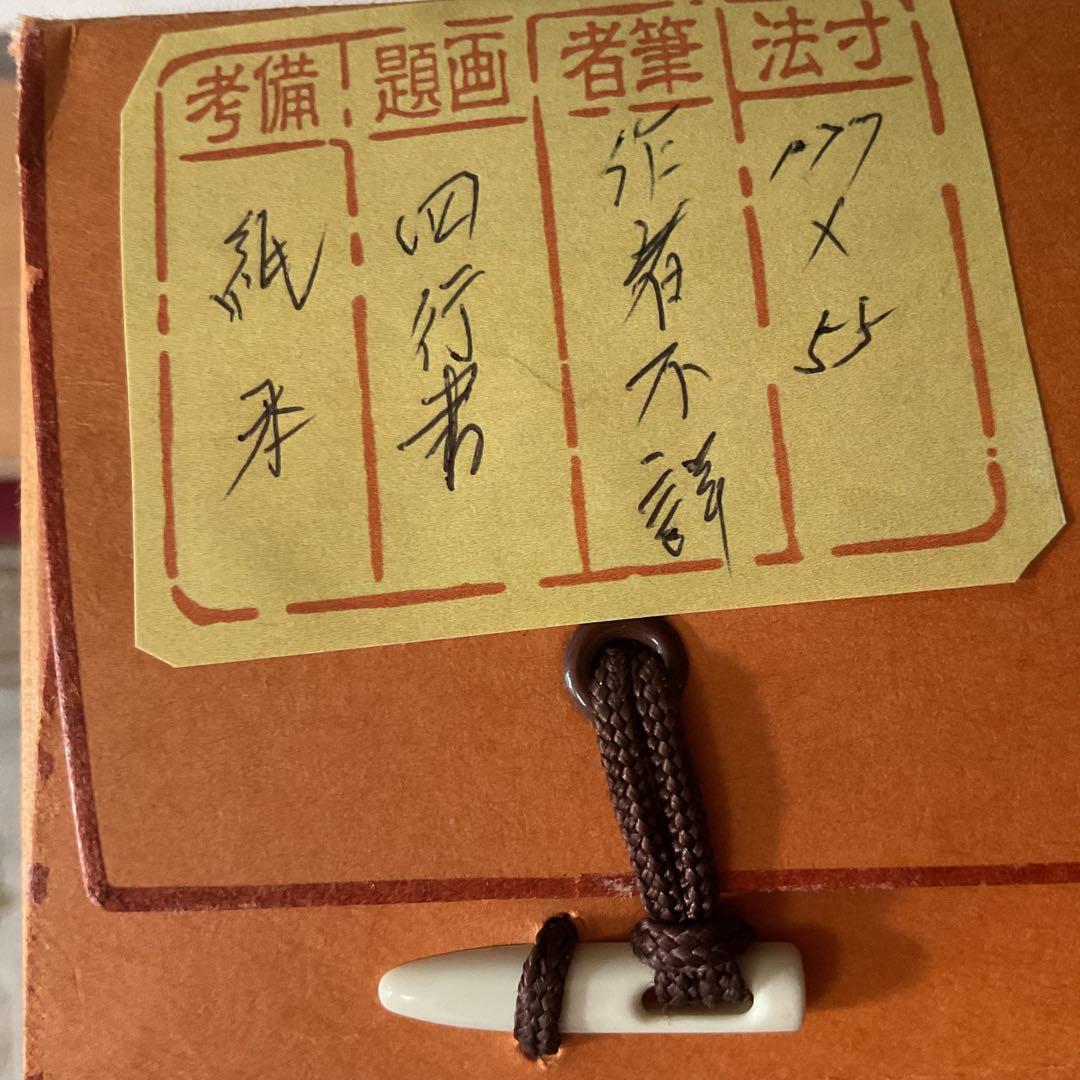 寸法
177
×
55
筆者
作者不詳
画題
四行書
備考
紙本